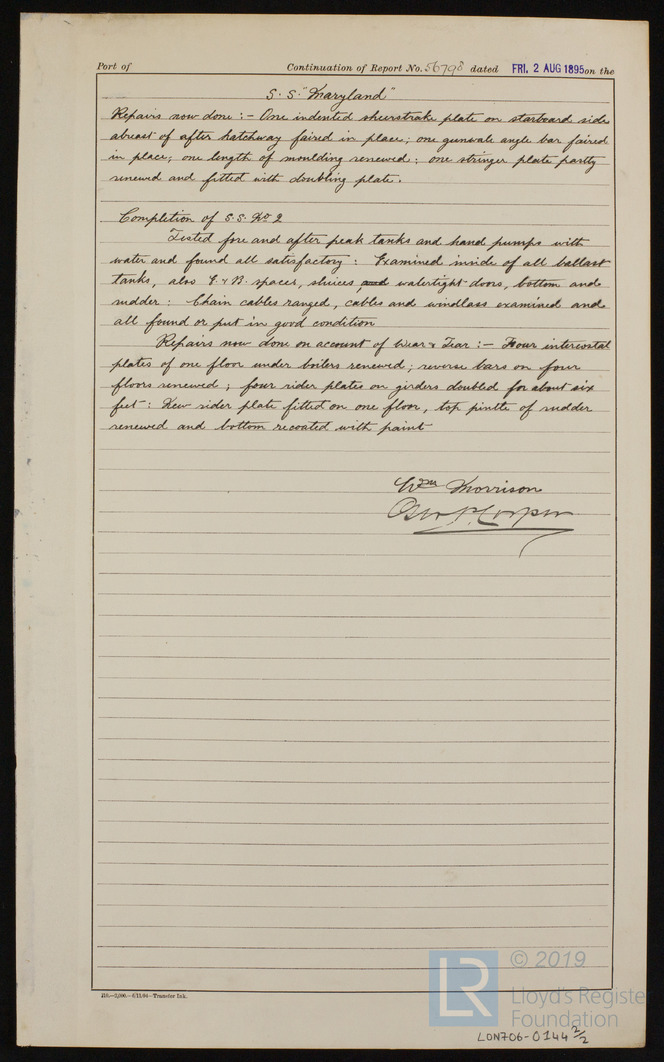 Port of Continuation of Report No. 56798 dated FRI. 2 AUG 1895 on the
S.S. "Maryland"
Repairs now done :- One indented sheerstrake plate on starboard side
abreast of after hatchway faired in place; one gunwale angle bar faired
in place; one length of moulding renewed; one stringer plate partly
renewed and fitted with doubling plate.
Completion of S.S. No 2
Tested fore and after peak tanks and hand pumps with
water and found all satisfactory : Examined inside of all ballast
tanks, also E & B spaces, sluices, and watertight doors, bottom and
rudder : Chain cables ranged, cables and windlass examined and
all found or put in good condition
Repairs now done on account of Wear & Tear :- Four intercostal
plates of one floor under boilers renewed; reverse bars on four
floors renewed; four rider plates on girders doubled for about six
feet : New rider plate fitted on one floor, top pintle of rudder
renewed and bottom recoated with paint
Wm Morrison
Transfer Ink.
© 2019
LR Lloyd's Register
Foundation
LON706-0144 2/2